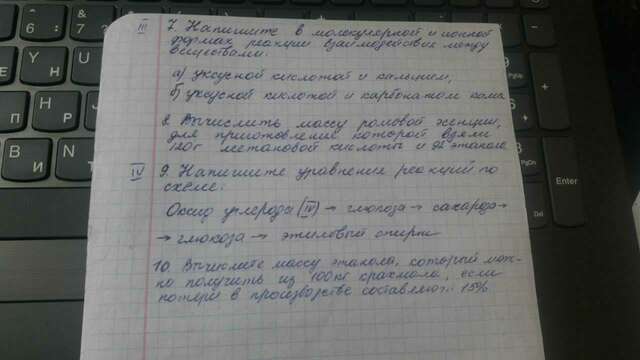 III 7. Напишите в молекулярной и ионной
формах реакции взаимодействия между
веществами:
а) уксусной кислотой и кальцием,
б) уксусной кислотой и карбонатом
8. Вычислить массу ромовой эсенции,
для приготовления которой взяли
120г метановой кислоты и 92 этанола
IV 9. Напишите уравнения реакций по
схеме:
Оксид углерода (IV) → глюкоза → сахароза →
→ глюкоза → этиловый спирт
10. Вычислите массу этанола, который мож-
но получить из 100кг крахмала, если
потери в производстве составляют 15%
Enter